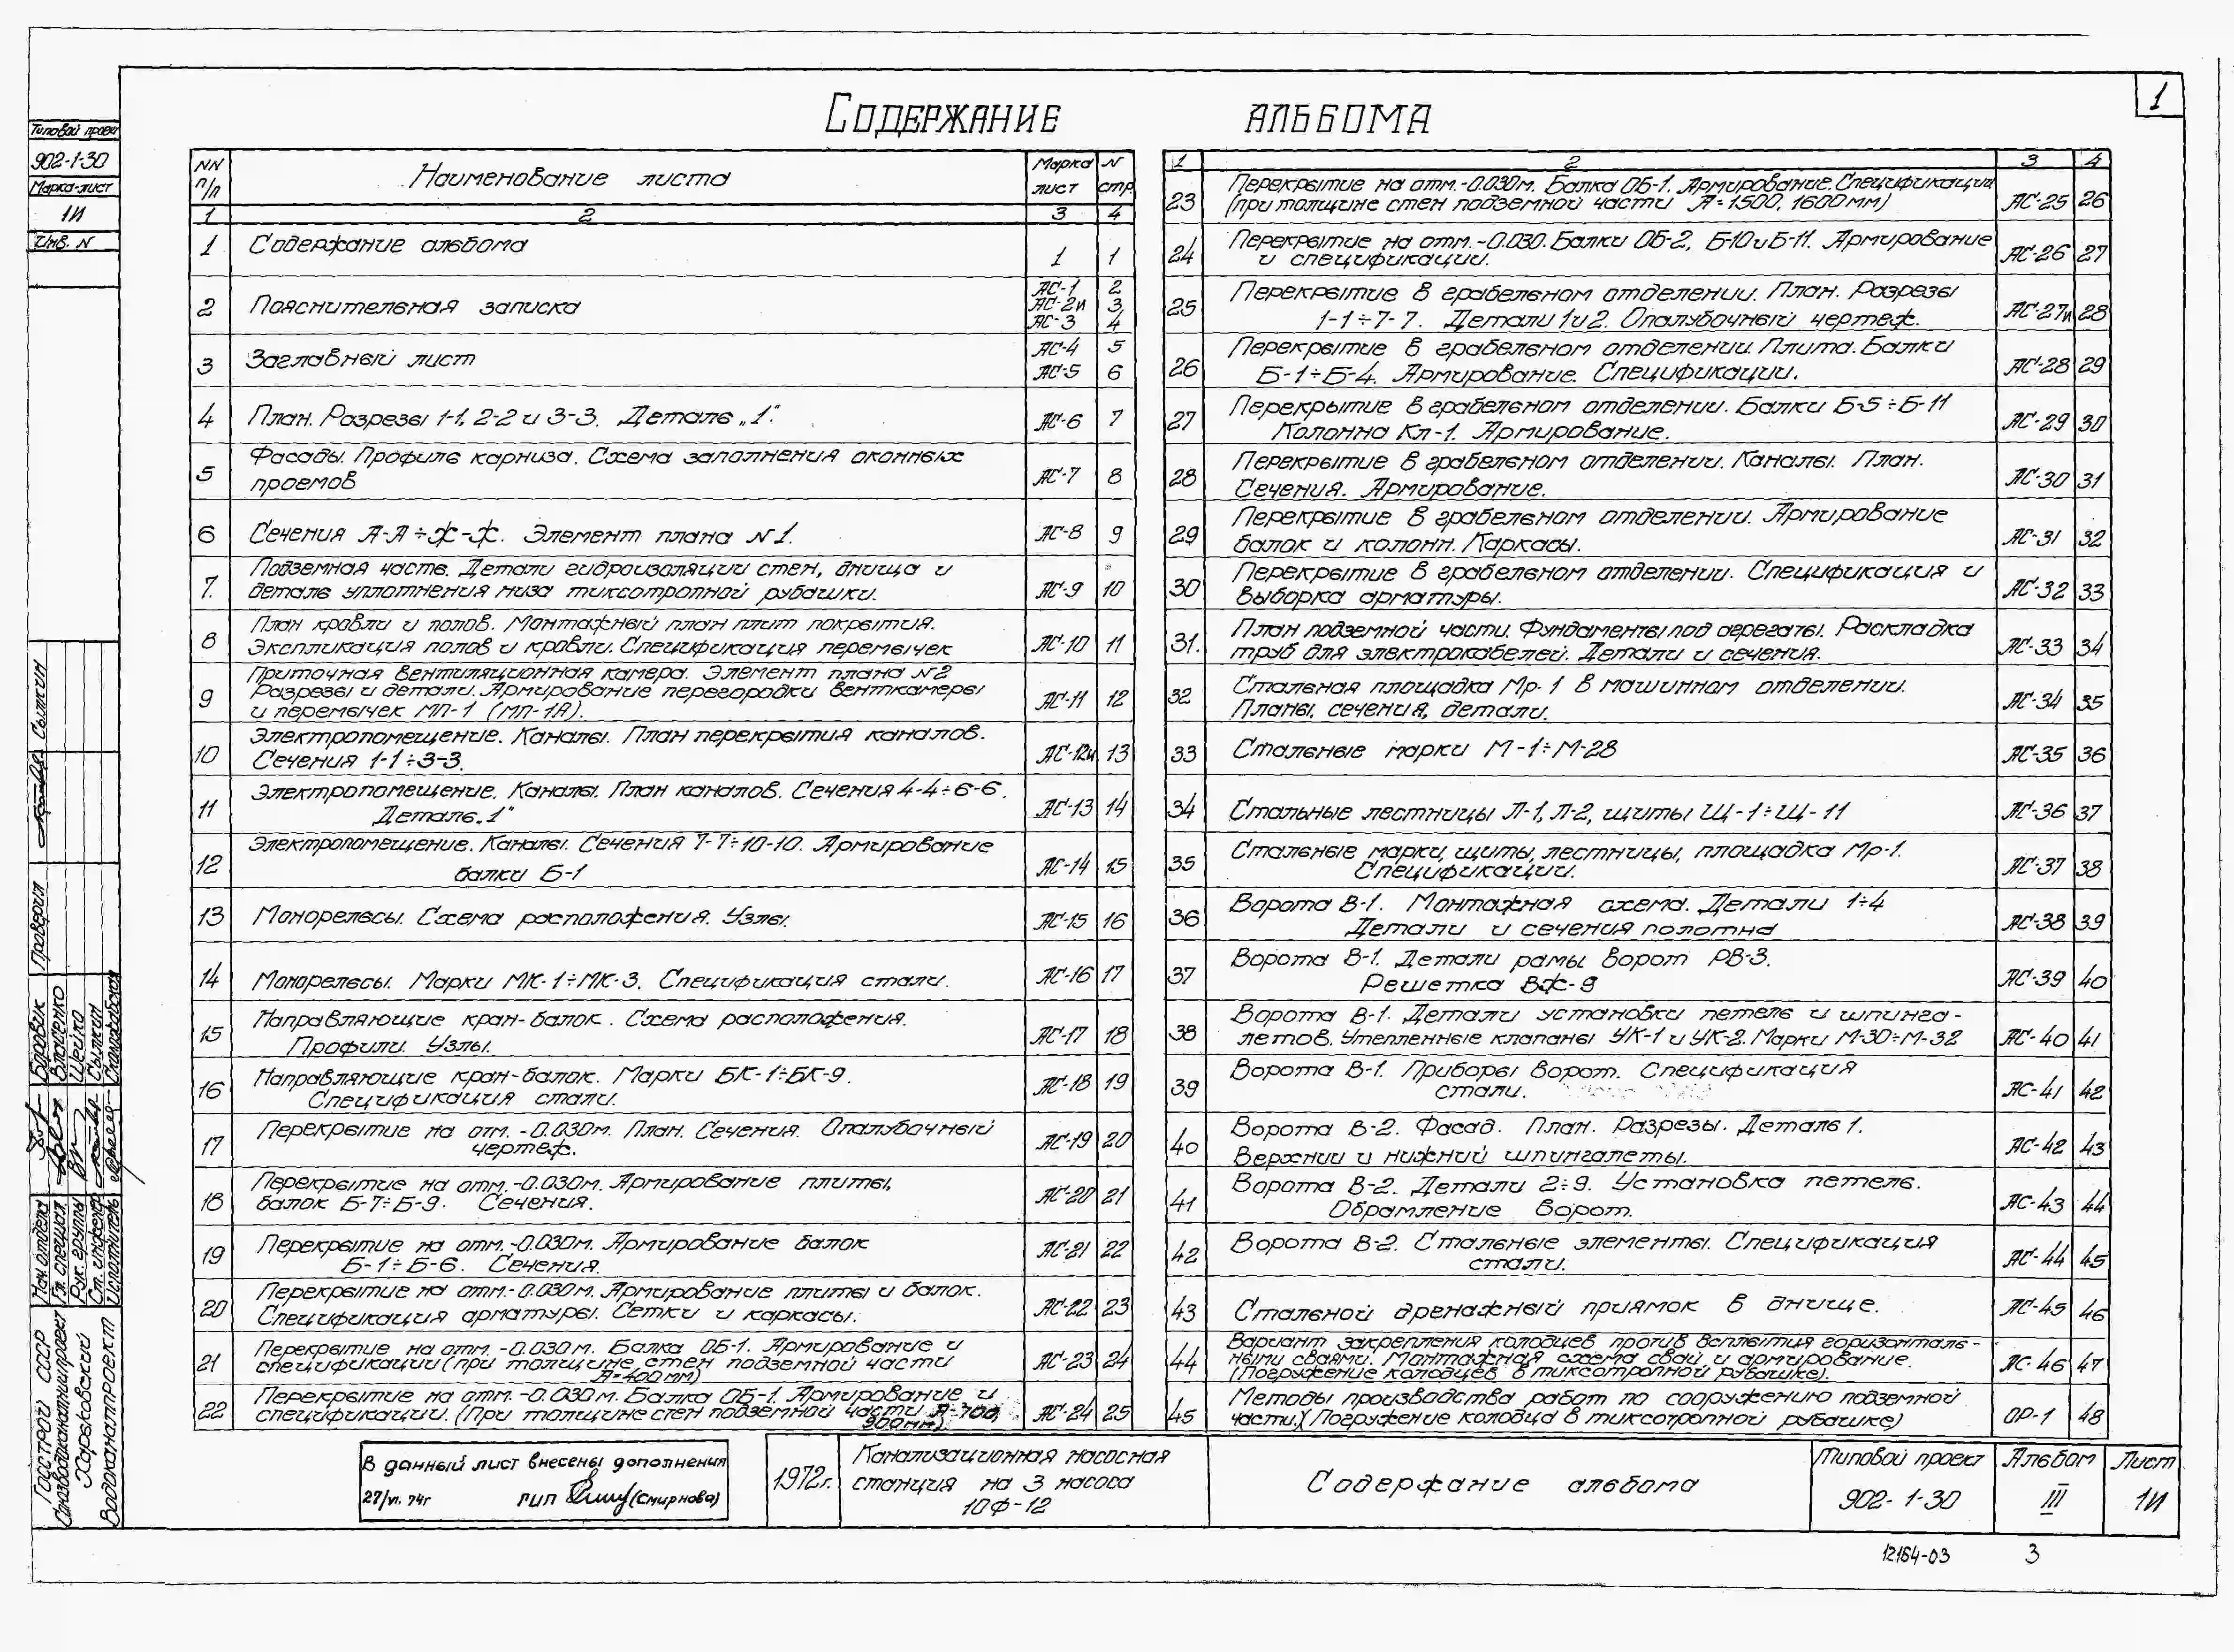 1
СОДЕРЖАНИЕ АЛЬБОМА
Типовой проект
902-1-30
Марка-лист
1И
Инв. N
NN п/п
Наименование листа
Марка лист
N стр
1 2 3 4
1 Содержание альбома 1 1
2 Пояснительная записка АС-1 2
АС-2и 3
АС-3 4
3 Заглавный лист АС-4 5
АС-5 6
4 План. Разрезы 1-1, 2-2 и 3-3. Деталь „1". АС-6 7
5 Фасады. Профиль карниза. Схема заполнения оконных
проемов АС-7 8
6 Сечения А-А÷Ж-Ж. Элемент плана N1. АС-8 9
7. Подземная часть. Детали гидроизоляции стен, днища и
деталь уплотнения низа тиксотропной рубашки. АС-9 10
8 План кровли и полов. Монтажный план плит покрытия.
Экспликация полов и кровли. Спецификация перемычек АС-10 11
9 Приточная вентиляционная камера. Элемент плана N2
Разрезы и детали. Армирование перегородки венткамеры
и перемычек МП-1 (МП-1А). АС-11 12
10 Электропомещение. Каналы. План перекрытия каналов.
Сечения 1-1÷3-3. АС-12и 13
11 Электропомещение. Каналы. План каналов. Сечения 4-4÷6-6.
Деталь „1" АС-13 14
12 Электропомещение. Каналы. Сечения 7-7÷10-10. Армирование
балки Б-1 АС-14 15
13 Монорельсы. Схема расположения. Узлы. АС-15 16
14 Монорельсы. Марки МК-1÷МК-3. Спецификация стали. АС-16 17
15 Направляющие кран-балок. Схема расположения.
Профили. Узлы. АС-17 18
16 Направляющие кран-балок. Марки БК-1÷БК-9.
Спецификация стали. АС-18 19
17 Перекрытие на отм. -0.030м. План. Сечения. Опалубочный
чертеж. АС-19 20
18 Перекрытие на отм. -0.030м. Армирование плиты,
балок Б-7÷Б-9. Сечения. АС-20 21
19 Перекрытие на отм. -0.030м. Армирование балок
Б-1÷Б-6. Сечения. АС-21 22
20 Перекрытие на отм.-0.030м. Армирование плиты и балок.
Спецификация арматуры. Сетки и каркасы. АС-22 23
21 Перекрытие на отм. -0.030м. Балка ОБ-1. Армирование и
спецификации (при толщине стен подземной части
А=400мм) АС-23 24
22 Перекрытие на отм. -0.030м. Балка ОБ-1. Армирование и
спецификации. (При толщине стен подземной части А-700,
900мм). АС-24 25
1 2 3 4
23 Перекрытие на отм.-0.030м. Балка ОБ-1. Армирование. Спецификации
(при толщине стен подземной части А=1500, 1600мм) АС-25 26
24 Перекрытие на отм.-0.030. Балки ОБ-2, Б-10 и Б-11. Армирование
и спецификации. АС-26 27
25 Перекрытие в грабельном отделении. План. Разрезы
1-1÷7-7. Детали 1 и 2. Опалубочный чертеж. АС-27и 28
26 Перекрытие в грабельном отделении. Плита. Балки
Б-1÷Б-4. Армирование. Спецификации. АС-28 29
27 Перекрытие в грабельном отделении. Балки Б-5÷Б-11
Колонна Кл-1. Армирование. АС-29 30
28 Перекрытие в грабельном отделении. Каналы. План.
Сечения. Армирование. АС-30 31
29 Перекрытие в грабельном отделении. Армирование
балок и колонн. Каркасы. АС-31 32
30 Перекрытие в грабельном отделении. Спецификация и
выборка арматуры. АС-32 33
31. План подземной части. Фундаменты под агрегаты. Раскладка
труб для электрокабелей. Детали и сечения. АС-33 34
32 Стальная площадка Мр-1 в машинном отделении.
Планы, сечения, детали. АС-34 35
33 Стальные марки М-1÷М-28 АС-35 36
34 Стальные лестницы Л-1, Л-2, щиты Щ-1÷Щ-11 АС-36 37
35 Стальные марки, щиты, лестницы, площадка Мр-1.
Спецификации. АС-37 38
36 Ворота В-1. Монтажная схема. Детали 1÷4
Детали и сечения полотна АС-38 39
37 Ворота В-1. Детали рамы ворот РВ-3.
Решетка ВЖ-9 АС-39 40
38 Ворота В-1. Детали установки петель и шпинга-
летов. Утепленные клапаны УК-1 и УК-2. Марки М-30÷М-32 АС-40 41
39 Ворота В-1. Приборы ворот. Спецификация
стали. АС-41 42
40 Ворота В-2. Фасад. План. Разрезы. Деталь 1.
Верхний и нижний шпингалеты. АС-42 43
41 Ворота В-2. Детали 2÷9. Установка петель.
Обрамление ворот. АС-43 44
42 Ворота В-2. Стальные элементы. Спецификация
стали. АС-44 45
43 Стальной дренажный приямок в днище. АС-45 46
44 Вариант закрепления колодцев против всплытия горизонталь-
ными сваями. Монтажная схема свай и армирование.
(Погружение колодцев в тиксотропной рубашке). АС-46 47
45 Методы производства работ по сооружению подземной
части. (Погружение колодца в тиксотропной рубашке) ОР-1 48
Сыпкин
Проверил
Нач. отдела Боровик
Гл. специал. Власенко
Рук. группы Шейко
Ст. инженер Сыпкин
Исполнитель
ГОССТРОЙ СССР
Союзводоканалниипроект
Харьковский
Водоканалпроект
В данный лист внесены дополнения
27/VI. 74г ГИП (Смирнова)
1972г.
Канализационная насосная
станция на 3 насоса
10Ф-12
Содержание альбома
Типовой проект
902-1-30
Альбом
III
Лист
1И
12164-03 3